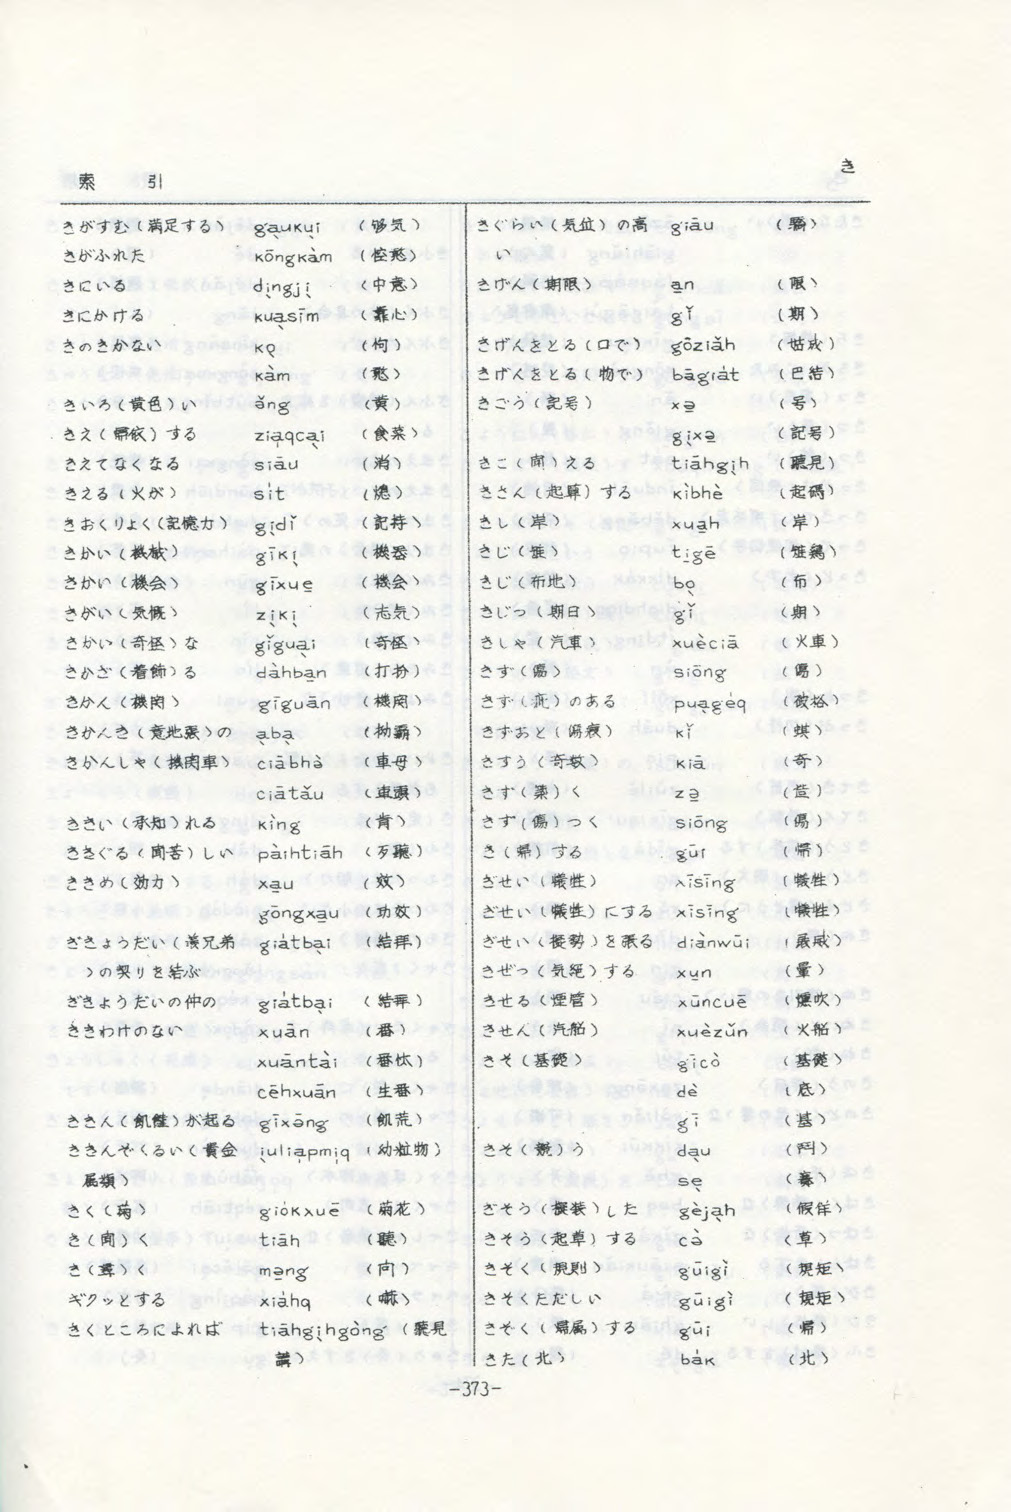 き
索 引
きがすむ(満足する) ga̤uku̩i (够気)
きがふれた kōngkàm (悾憨)
きにいる di̩ngji̩ (中意)
きにかける kua̩sīm (靠心)
きのきかない ko̩ (枸)
kàm (憨)
きいろ(黄色)い ǎng (黄)
きえ(帰依)する zia̩qca̩i (食菜)
きえてなくなる siāu (消)
きえる(火が) sit (熄)
きおくりょく(記憶力) gi̩dǐ (記持)
きかい(機械) gīki̩ (機器)
きかい(機会) gīxue̲ (機会)
きがい(気慨) zi̩ki̩ (志気)
きかい(奇怪)な gǐgua̩i (奇怪)
きかざ(着飾)る dàhba̲n (打扮)
きかん(機関) gīguān (機関)
きかんき(意地張)の a̩ba̩ (拗霸)
きかんしゃ(機関車) ciābhò (車母)
ciātǎu (車頭)
ききい(承知)れる kìng (肯)
ききぐる(聞苦)しい pàihtiāh (歹聴)
ききめ(効力) xa̲u (效)
gōngxa̲u (功效)
ぎきょうだい(義兄弟 giátba̩i (結拜)
)の契りを結ぶ
ぎきょうだいの仲の giátba̩i (結拜)
ききわけのない xuān (番)
xuāntài (番呔)
cēhxuān (生番)
ききん(飢饉)が起る gīxāng (飢荒)
ききんぞくるい(貴金 iu̩lia̩pmi̩q (幼粒物)
属類)
きく(菊) giókxuē (菊花)
き(聞)く tiāh (聴)
き(尋)く ma̲ng (问)
ギクッとする xiàhq (嚇)
きくところによれば tiāhgi̩hgòng (聴見
講)
きぐらい(気位)の高 giāu (驕)
い
きげん(期限) a̲n (限)
gǐ (期)
きげんをとる(口で) gōziǎh (姑成)
きげんをとる(物で) bāgiát (巴結)
きごう(記号) xə̲ (号)
gi̩xə̲ (記号)
きこ(聞)える tiāhgi̩h (聴見)
きさん(起算)する kìbhè (起碼)
きし(岸) xua̲h (岸)
きじ(雉) ti̩gē (雉鶏)
きじ(布地) bo̩ (布)
きじつ(期日) gǐ (期)
きしゃ(汽車) xuèciā (火車)
きず(傷) siōng (傷)
きず(疵)のある pua̩géq (破裕)
きずあと(傷痕) kǐ (蜞)
きすう(奇数) kiā (奇)
きず(築)く zə̲ (造)
きず(傷)つく siōng (傷)
き(帰)する gūi (帰)
ぎせい(犠牲) xīsīng (犠牲)
ぎせい(犠牲)にする xīsīng (犠牲)
ぎせい(擬勢)を張る diànwūi (展威)
きぜつ(気絶)する xu̲n (暈)
きせる(煙管) xūncuē (燻吹)
きせん(汽船) xuèzǔn (火船)
きそ(基礎) gīcò (基礎)
dè (底)
gī (基)
きそ(競)う da̩u (鬥)
se̲ (賽)
きそう(擬装)した gèja̲h (假佯)
きそう(起草)する cə̀ (草)
きそく(規則) gūigì (規矩)
きそくただしい gūigì (規矩)
きぞく(帰属)する gūi (帰)
きた(北) bák (北)
-373-